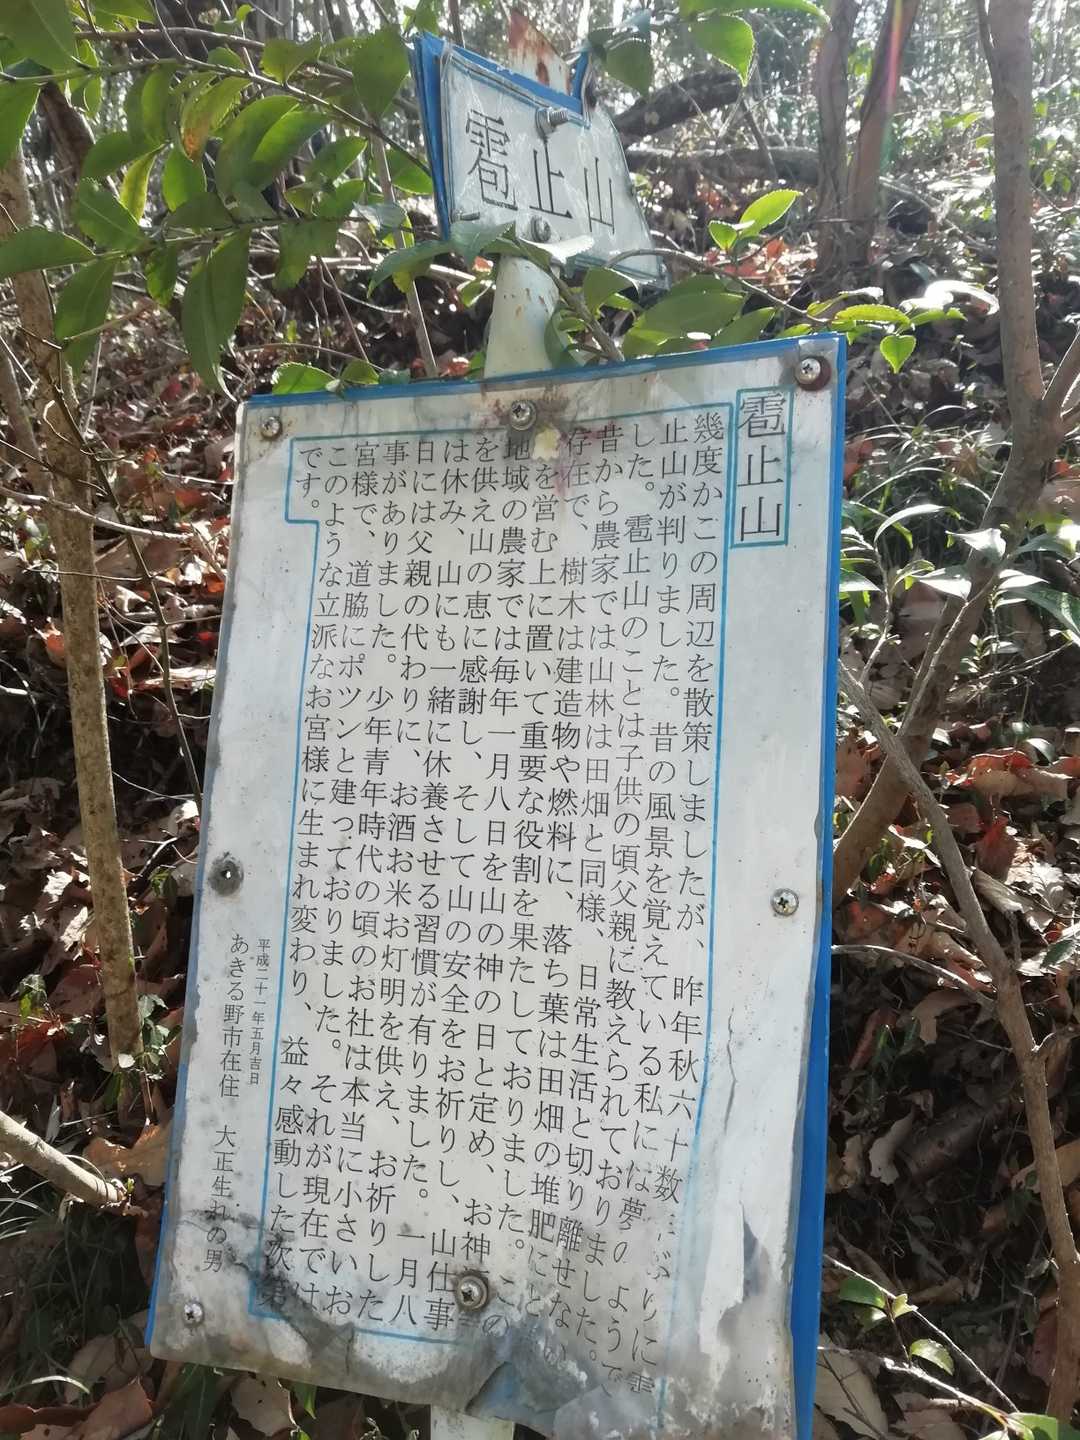 雹止山
雹止山
幾度かこの周辺を散策しましたが、昨年秋六十数 ぶりに雹
止山が判りました。昔の風景を覚えている私には夢のようで
した。雹止山のことは子供の頃父親に教えられておりました。
昔から農家では山林は田畑と同様、日常生活と切り離せない
存在で、樹木は建造物や燃料に、落ち葉は田畑の堆肥にと
を営む上に置いて重要な役割を果たしておりました。この
地域の農家では毎年一月八日を山の神の日と定め、お神
を供え山の恵に感謝し、そして山の安全をお祈りし、山仕事
は休み、山にも一緒に休養させる習慣が有りました。一月八
日には父親の代わりに、お酒お米お灯明を供え、お祈りした
事がありました。少年青年時代の頃のお社は本当に小さいお
宮様で、道脇にポツンと建っておりました。それが現在では
このような立派なお宮様に生まれ変わり、益々感動した次第
です。
平成二十一年五月吉日
あきる野市在住 大正生れの男